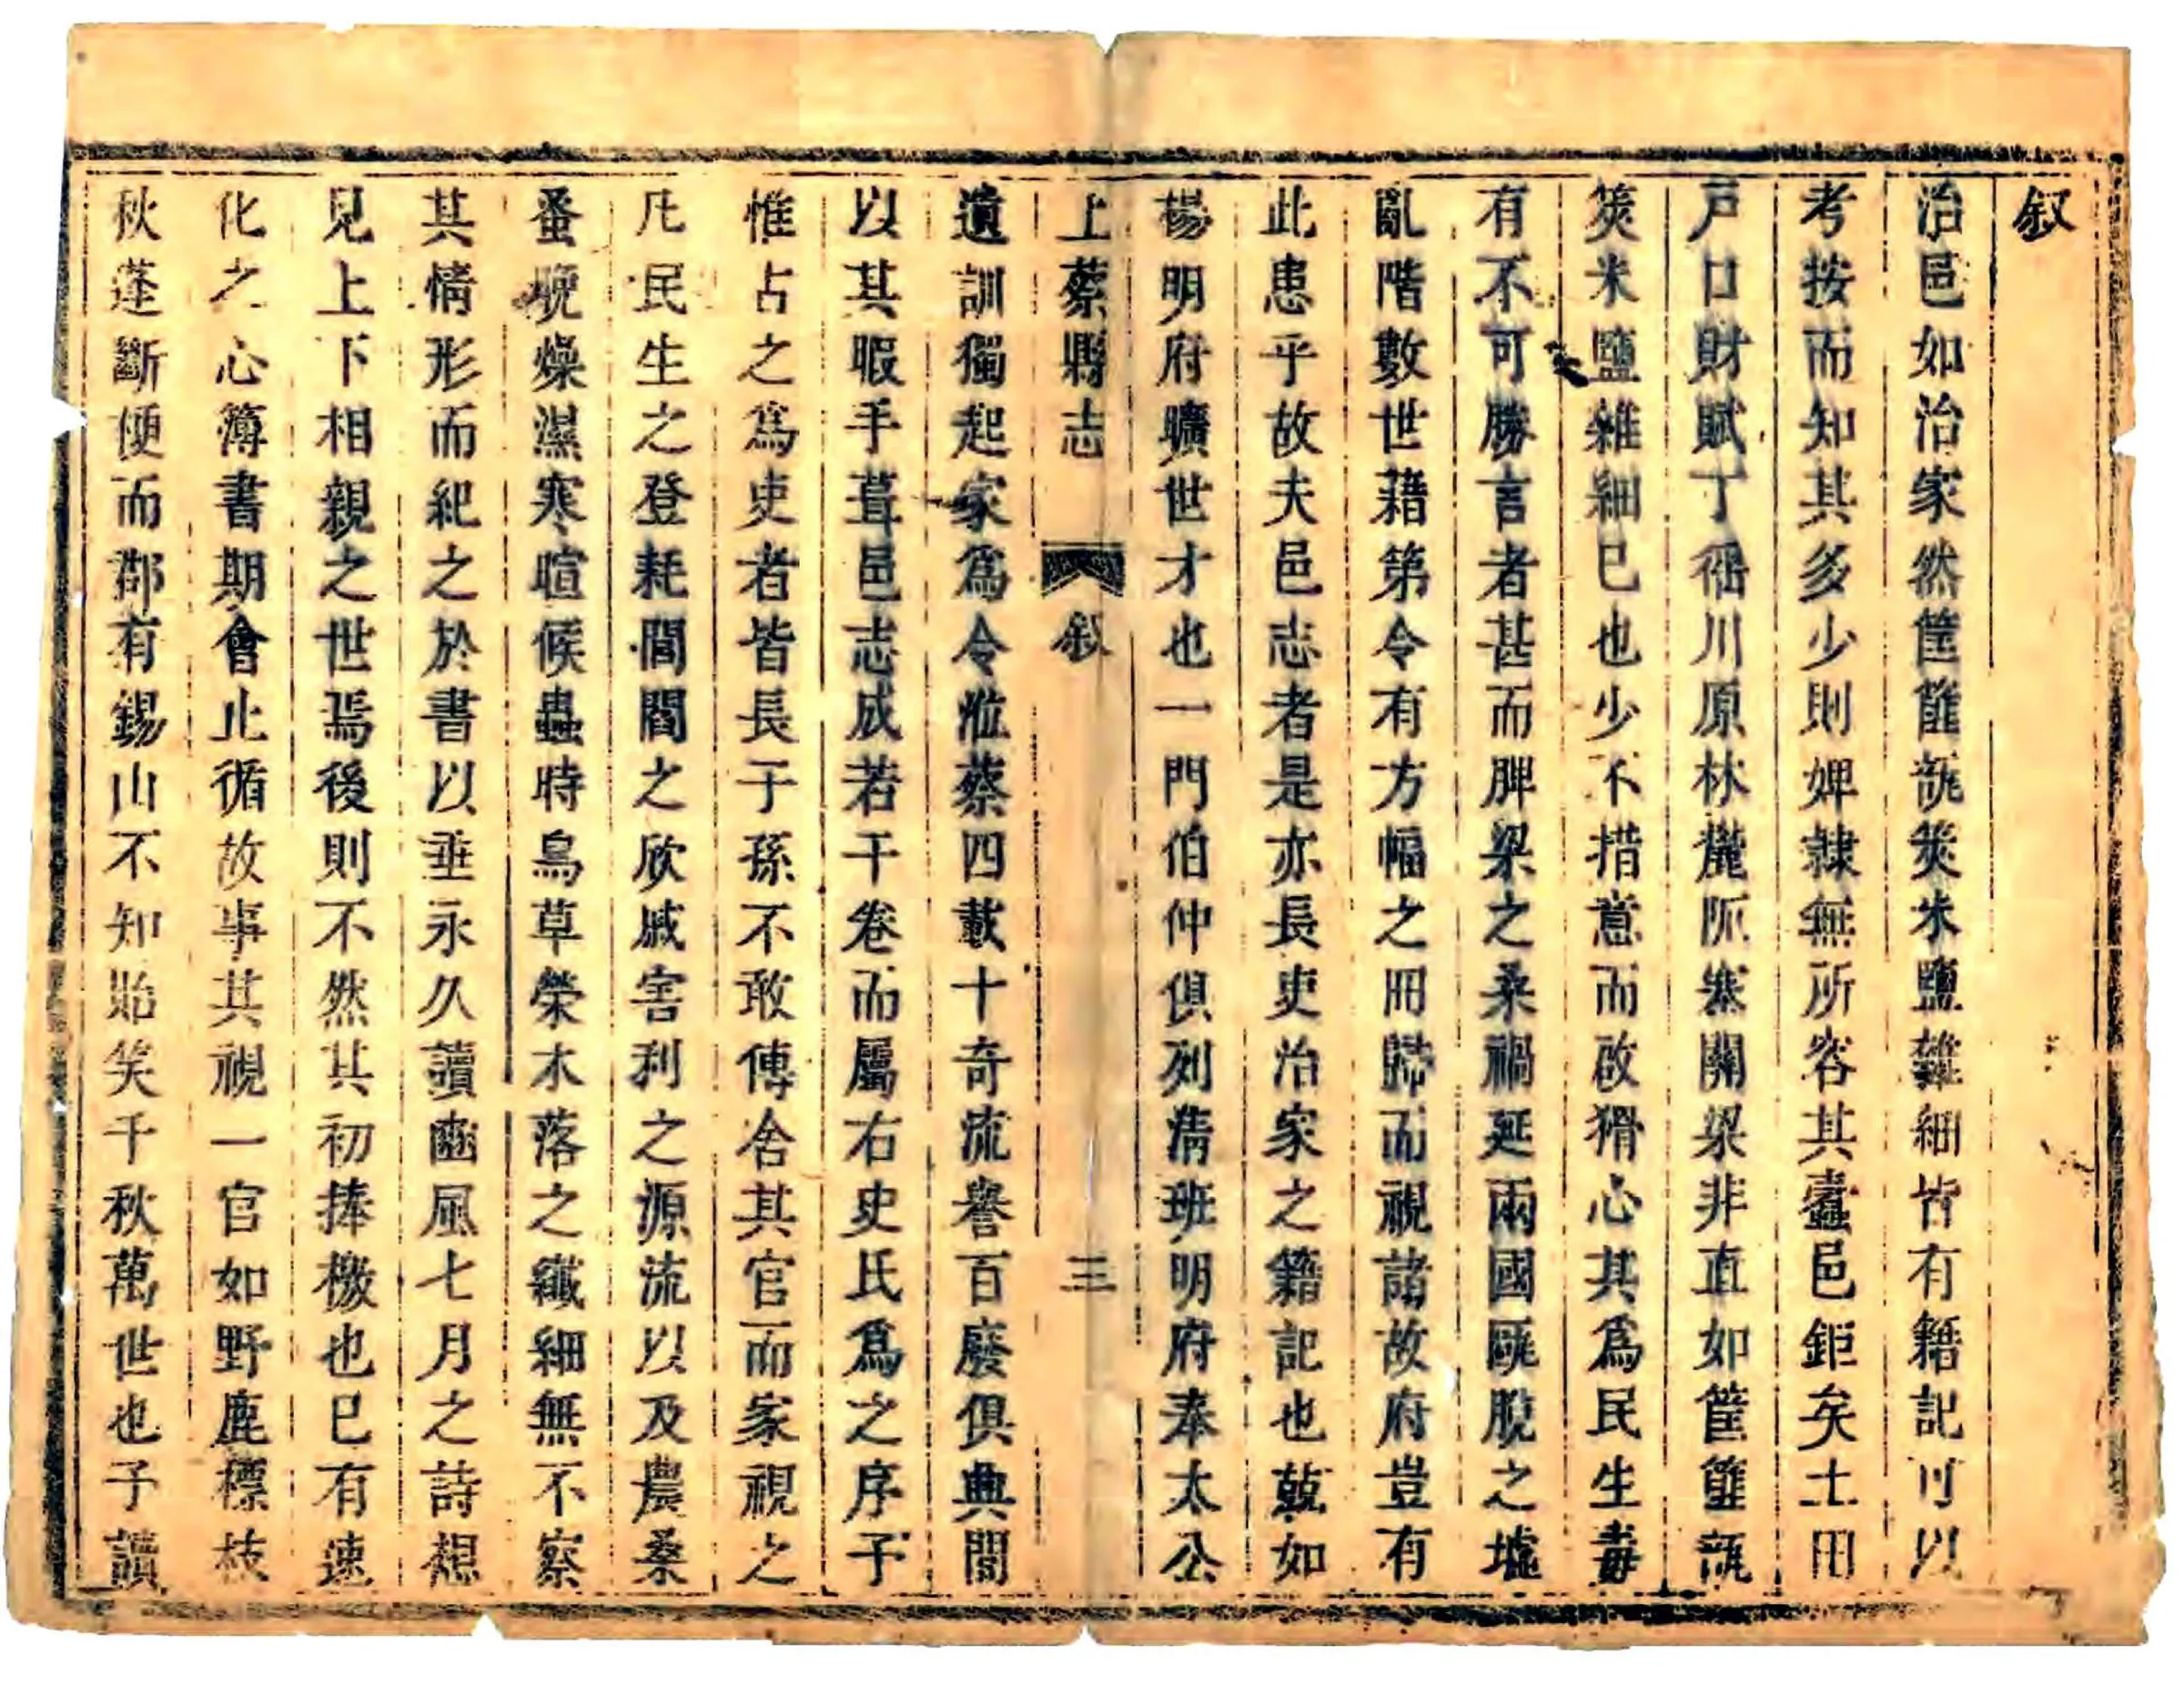 叙
治邑如治家然筐篚瓻筴米鹽雜細皆有籍記可以
考按而知其多少則婢隷無所容其蠹邑鉅矣土田
戸口財賦丁徭川原林麓阨塞關梁非直如筐篚瓻
筴米鹽雜細巳也少不措意而啟猾心其爲民生毒
有不可勝言者甚而脾梁之桑禍延兩國甌脫之墟
亂階數世藉第令有方幅之冊歸而視諸故府豈有
此患乎故夫邑志者是亦長吏治家之籍記也兢如
楊明府曠世才也一門伯仲俱列清班明府奉太公
上蔡縣志 叙 三
遺訓獨起家爲令涖蔡四載十奇流譽百廢俱典閒
以其暇手葺邑志成若干卷而屬右史氏爲之序予
惟古之爲吏者皆長于孫不敢傳舍其官而家視之
凡民生之登耗閭閻之欣戚害利之源流以及農桑
蚤晚燥濕寒暄候蟲時鳥草榮木落之纖細無不察
其情形而紀之於書以垂永久讀豳風七月之詩想
見上下相親之世焉後則不然其初捧檄也巳有速
化之心簿書期會止循故事其視一官如野鹿標枝
秋蓬斷便而郡有錫山不知貽笑千秋萬世也予讀